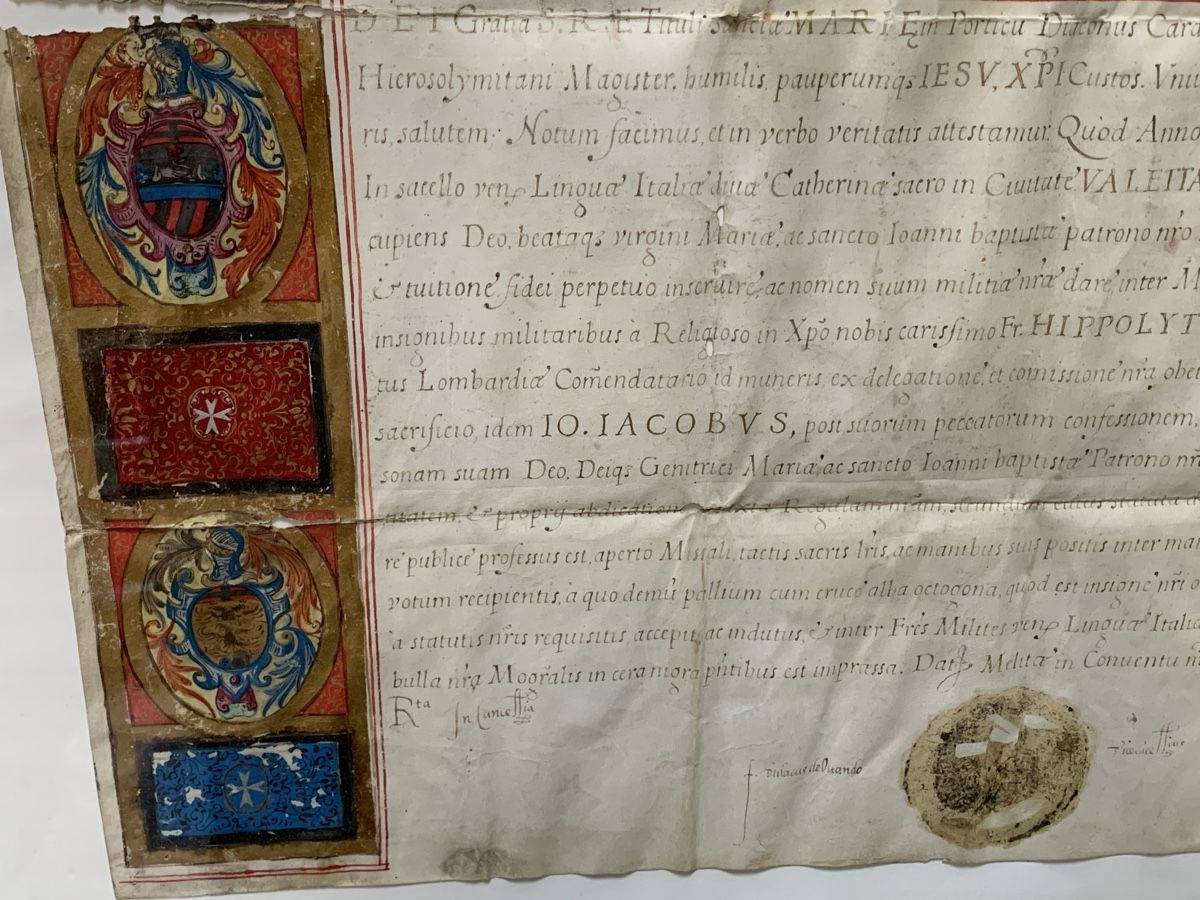 DEI Gratia S. R. E Tituli Sanctæ MARIE in Porticu Diaconus Card
Hierosolymitani Magister, humilis, pauperumqȝ IESV, XPI Custos. Vniu
ris, salutem; Notum facimus, et in verbo veritatis attestamur. Quod Anno
In sacello ven, Linguæ Italiæ diuæ Catherinæ sacro in Ciuitate VALETTA
cupiens Deo, beataqȝ virgini Mariæ, ac sancto Ioanni baptistæ patrono nr̃o
& tuitione fidei perpetuo inseruire, ac nomen suum militiæ nr̃æ dare, inter M
insignibus militaribus à Religioso in Xp̃o nobis carissimo Fr. HIPPOLYT
tus Lombardiæ Com̃endatario id muneris, ex delegatione, et comissione nr̃a obe
sacrificio, idem IO. IACOBVS, post suorum peccatorum confessionem,
sonam suam Deo, Deiqȝ Genitrici Mariæ, ac sancto Ioanni baptistæ Patrono nr̃
& proprij abdicatione Regulam nr̃am, statuta
re publice professus est, aperto Missali, tactis sacris lr̃is, ac manibus suis positis inter man
votum recipientis, à quo demũ pallium cum cruce alba octogona, quod est insigne nr̃i o
à statutis nr̃is requisitis, accepit, ac indutus, & inter Frẽs Milites ven, Linguæ Italiæ
bulla nr̃a Mogr̃alis in cera nigra pñtibus est impræssa. Dat, Melitæ in Conuentu nr̃
Rta In Cancellria